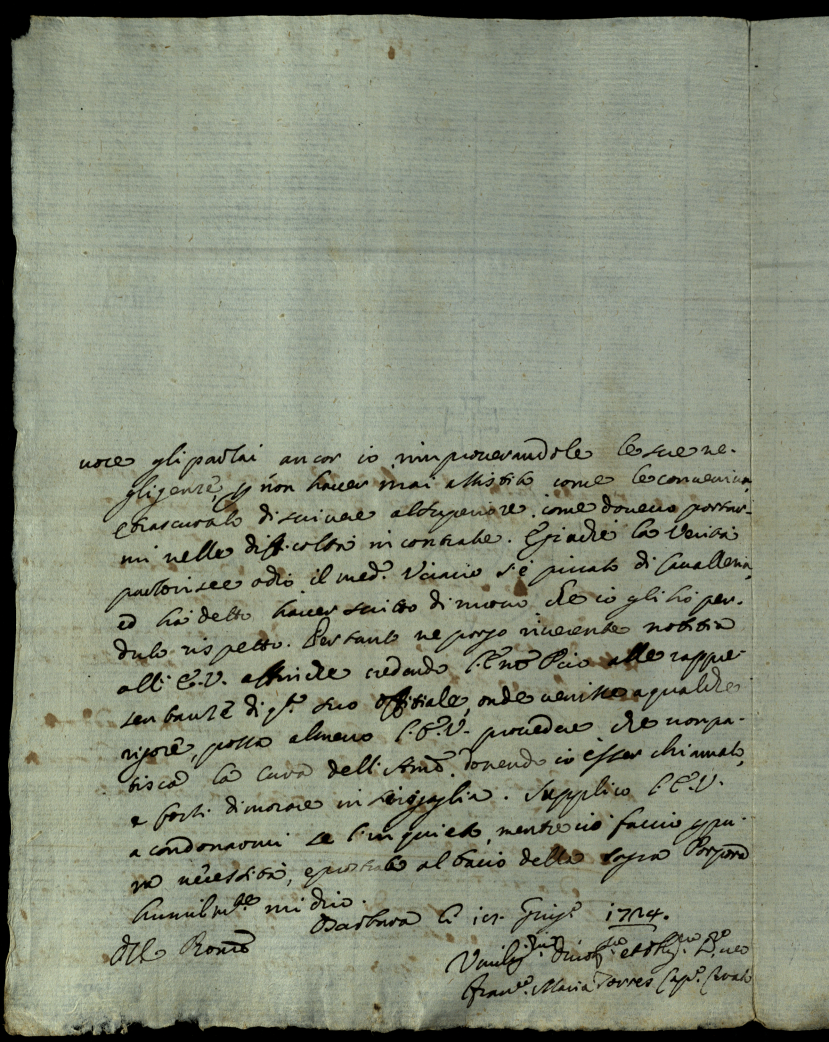 uoce gli parlai ancor io rimprouerandole le sue ne-
gligenze, p non hauer mai assistito come le conueniua,
e trascurato di scriuere al superiore, come doueuo portar-
mi nelle difficoltà incontrate. E già che la Verità
partorisce odio il med.º Vicario s'è piccato di Caualleria,
ed hà detto hauer scritto di nuouo, che io gli hò per-
duto rispetto. Pertanto ne porgo riuerente notitia
all' E.V. affinche credendo alle rappre-
sentanze di q.to suo Offitiale, onde uenisse a qualche
rigore, possa almeno l'E.V. prouedere che non pa-
tisca la Cura dell' Anime, douendo io esser chiamato,
e forsi dimorare in Senigaglia. Supplico l'E.V.
a condonarmi se l'inquieto, mentre ciò faccio p pu-
ra necessità, e prostrato al bacio della sagra Porpora
humilm.te mi dico.
Barbara li Giug.º 1724.
Dell' E.V.
Vmilis.mo Diuot.mo et Obblig.mo
Fran.co Maria Torres Cap.º Curato